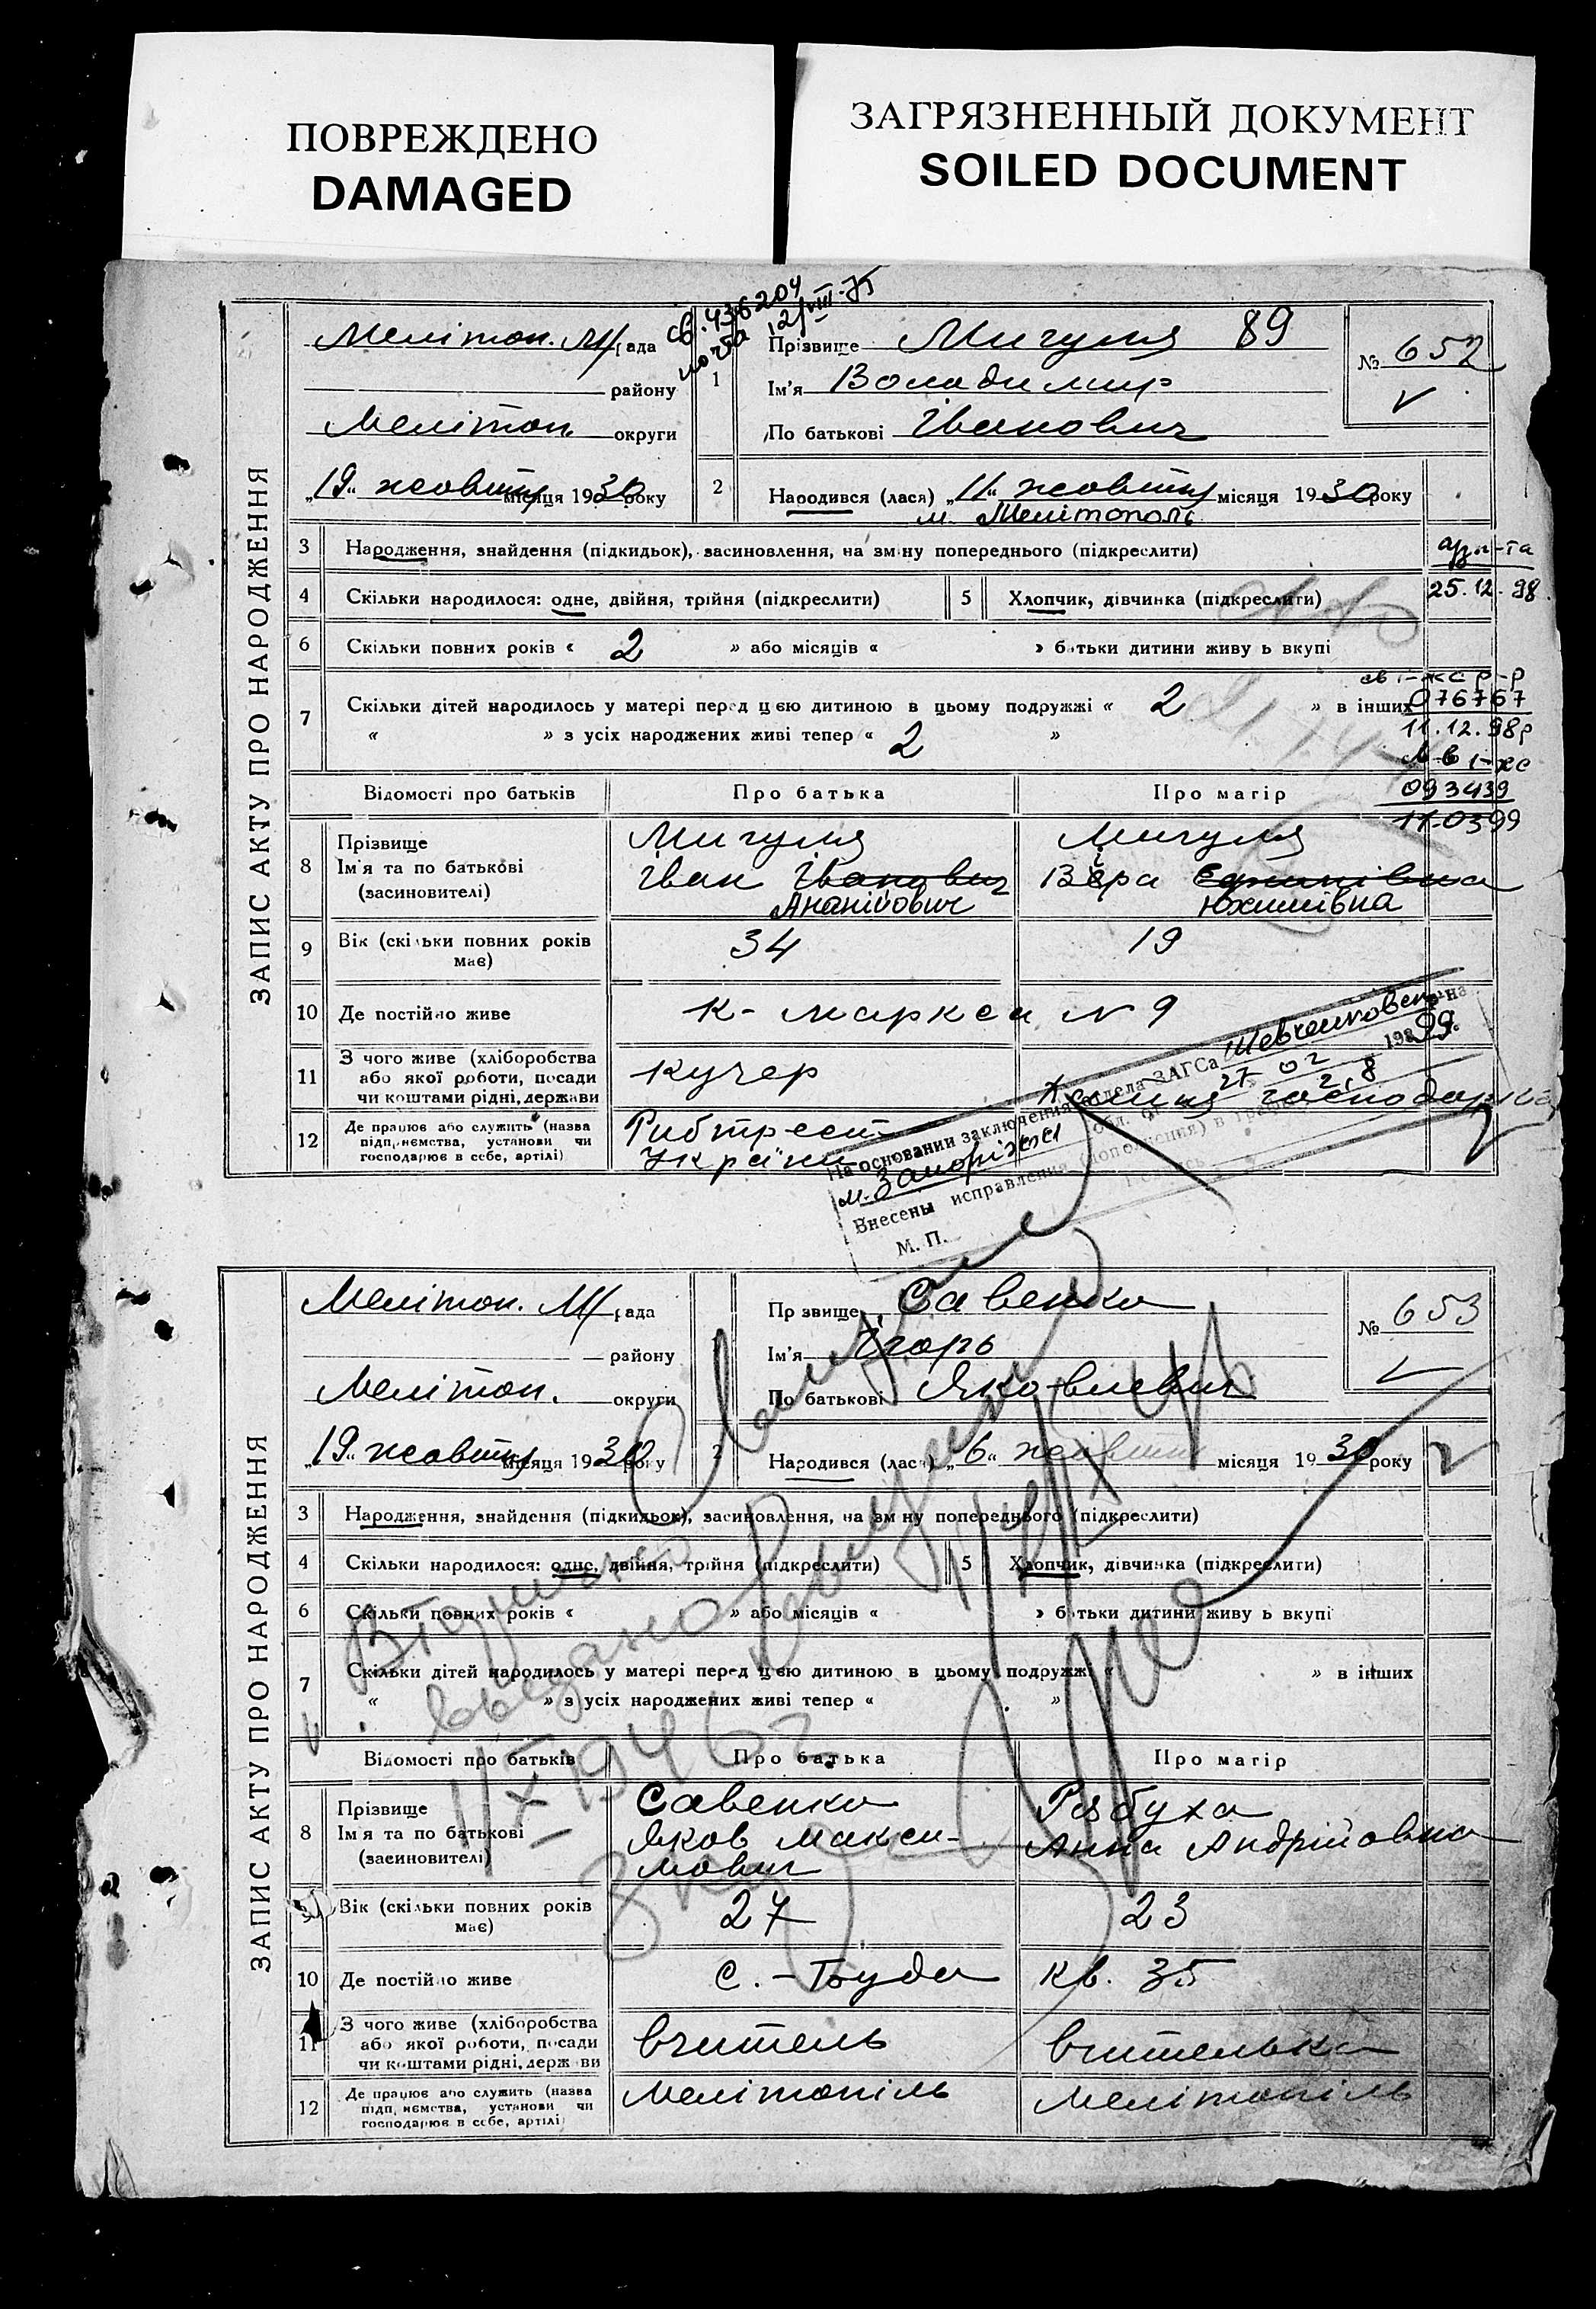 ПОВРЕЖДЕНО
DAMAGED
ЗАГРЯЗНЕННЫЙ ДОКУМЕНТ
SOILED DOCUMENT
ЗАПИС АКТУ ПРО НАРОДЖЕННЯ
Мелітоп. М/рада
району
Мелітоп. округи
св. 436204
почта 12/VIII-75
1
Прізвище Мигуля 89
Ім'я Володимир
По батькові Іванович
№ 652
„19“ жовтня місяця 1930 року
2
Народився (лася) „11“ жовтня місяця 1930 року
м. Мелітополь
3 Народження, знайдення (підкидьок), засиновлення, на зміну попереднього (підкреслити)
4 Скільки народилося: одне, двійня, трійня (підкреслити)
5 Хлопчик, дівчинка (підкреслити)
25.12.98
6 Скільки повних років « 2 » або місяців « » батьки дитини живуть вкупі
7 Скільки дітей народилось у матері перед цією дитиною в цьому подружжі « 2 » в інших
« » з усіх народжених живі тепер « 2 »
076767
11.12.98р
093439
11.03.99
Відомості про батьків Про батька Про матір
8 Прізвище
Ім'я та по батькові
(засиновителі)
Мигуля
Іван Іванович
Ананійович
Мигуля
Віра
Юхимівна
9 Вік (скільки повних років має) 34 19
10 Де постійно живе К-Маркса N 9
11 З чого живе (хліборобства або якої роботи, посади чи коштами рідні, держави
Кучер
господарка
12 Де працює або служить (назва підприємства, установи чи господарює в себе, артілі)
Рибтрест
України
На основании заключения отдела ЗАГСа Шевченковск р-на
м. Запоріжжя обл. от 27 02 1999 г.
Внесены исправления (дополнения) в
М. П.
ЗАПИС АКТУ ПРО НАРОДЖЕННЯ
Мелітоп. М/рада
району
Мелітоп. округи
Прізвище Савенко
Ім'я Ігорь
По батькові Яковлевич
№ 653
„19“ жовтня місяця 1930 року
2
Народився (лася) „6“ жовтня місяця 1930 року
3 Народження, знайдення (підкидьок), засиновлення, на зміну попереднього (підкреслити)
4 Скільки народилося: одне, двійня, трійня (підкреслити)
5 Хлопчик, дівчинка (підкреслити)
6 Скільки повних років « » або місяців « » батьки дитини живуть вкупі
7 Скільки дітей народилось у матері перед цією дитиною в цьому подружжі « » в інших
« » з усіх народжених живі тепер « »
Вторично
выдано
11/X 1946 г.
Відомості про батьків Про батька Про матір
8 Прізвище
Ім'я та по батькові
(засиновителі)
Савенко
Яков Макси-
мович
Рябуха
Анна Андрійовна
9 Вік (скільки повних років має) 27 23
10 Де постійно живе
кв. 35
11 З чого живе (хліборобства або якої роботи, посади чи коштами рідні, держави
вчитель
вчителька
12 Де працює або служить (назва підприємства, установи чи господарює в себе, артілі)
Мелітопіль
Мелітопіль